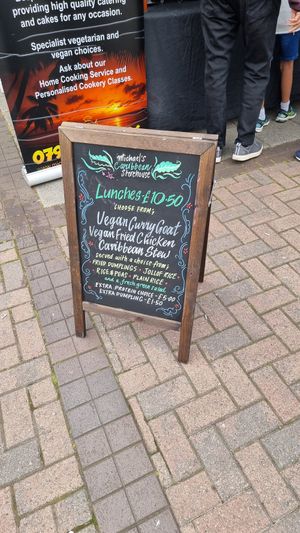 providing high quality catering
and cakes for any occasion.
Specialist vegetarian and
vegan choices.
Ask about our
Home Cooking Service and
Personalised Cookery Classes.
079
Michael's
Caribbean
Lunches - £10.50
Choose from:
Vegan Curry Goat
Vegan Fried Chicken
Caribbean Stew
Served with a choice from:
Fried Dumplings - Jollof Rice
Rice & Peas - Plain Rice
and a fresh green salad
Extra Protein Choice - £5.00
Extra Dumpling - £1.50